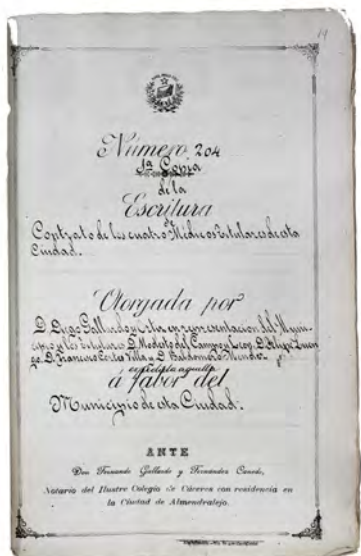 19
Número 204
1ª Copia
de la
Escritura
Contrato de los cuatro Médicos titulares de esta
Ciudad.
Otorgada por
D. Diego Gallardo y otros en representacion del Muni-
cipio y los titulares D. Modesto del Campo y D. Felipe
D. Francisco Cortés Villa y D. Baldomero Mendez
á favor del
Municipio de esta Ciudad.
ANTE
Don Fernando Gallardo y Fernández Canedo,
Notario del Ilustre Colegio de Cáceres con residencia en
la Ciudad de Almendralejo.